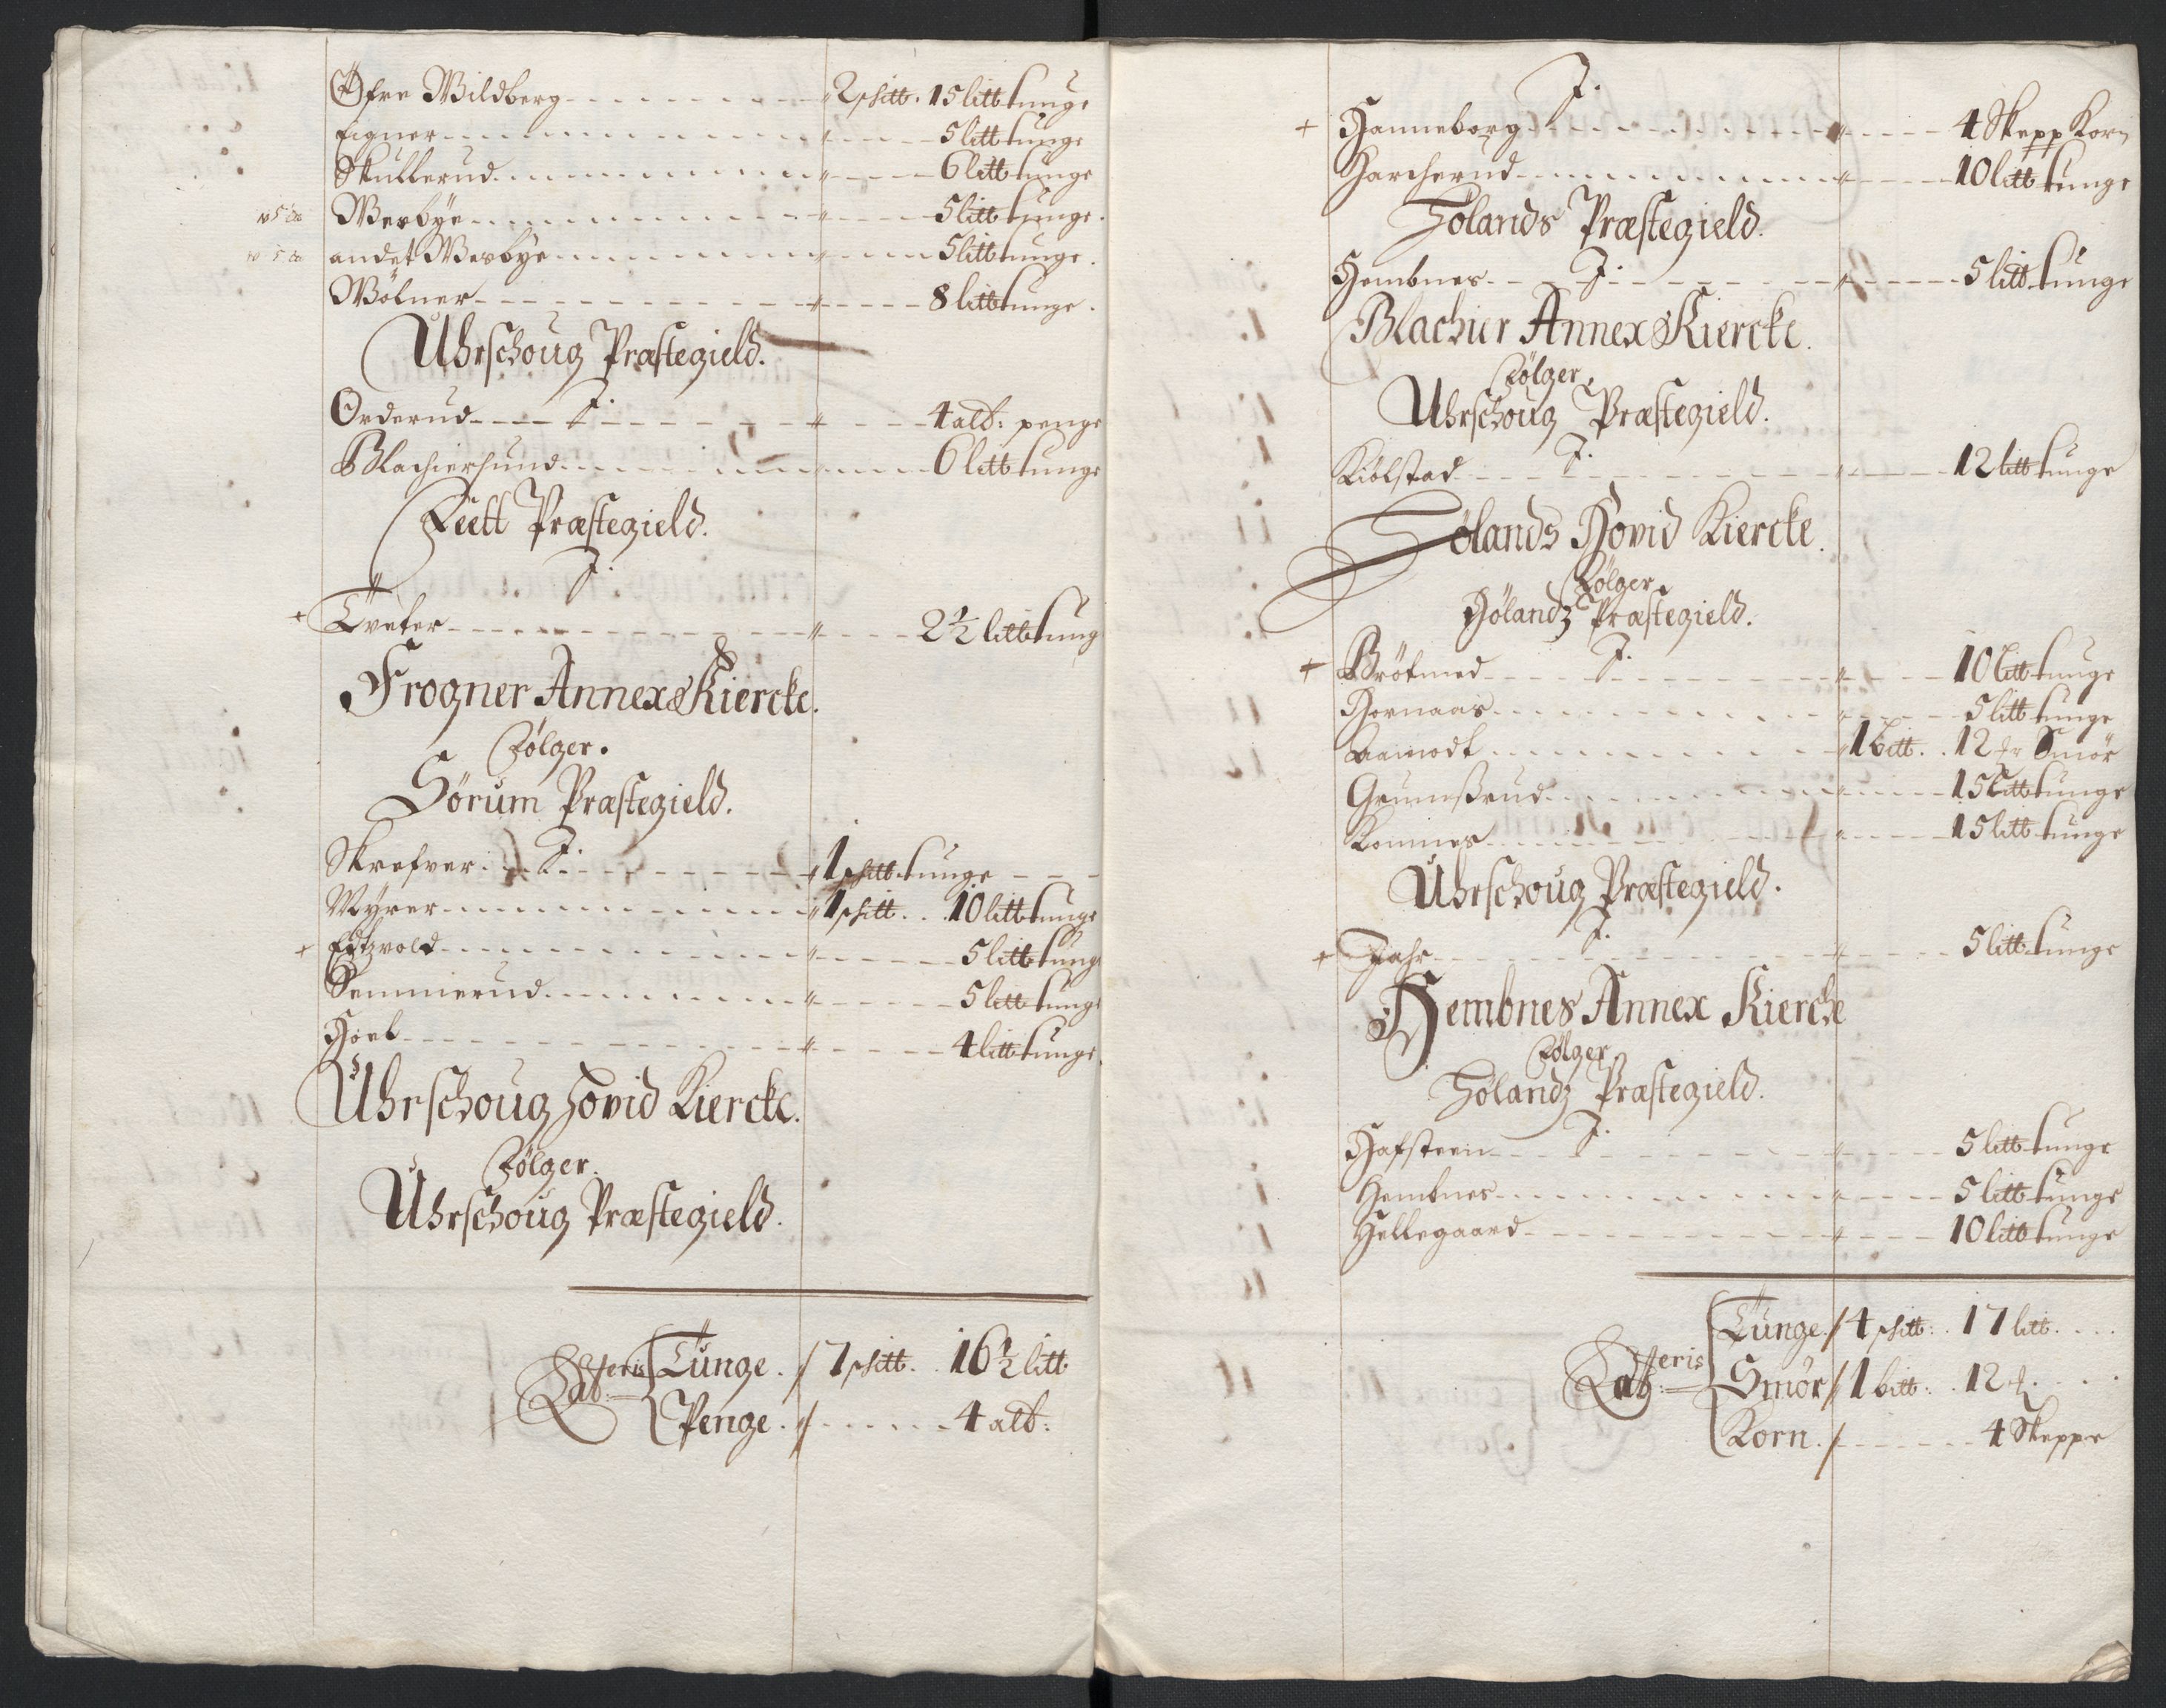 Øfre Wildberg - - - - - - - - " 2 skitt. 15 litt tunge
Eigner - - - - - - - - " - - - 5 litt tunge
Skullerud - - - - - - - - " - - - 6 litt tunge
Wesbye - - - - - - - - " - - - 5 litt tunge.
andet Wesbye - - - - - - - - " - - - 5 litt tunge.
Wölner - - - - - - - - " - - - 8 litt tunge.
Uhrschoug Præstegield.
J.
Orderud - - - - - - - - " - - - 4 alb: penge
Blachiersund - - - - - - - - " - - - 6 litt tunge
Feett Præstegield.
J.
+ Tveter - - - - - - - - " - - - 2 1/2 litt tung
Frogner Annex Kiercke.
Fölger.
Sörum Præstegield.
J.
Skrefver - - - - - - - - " 1 skitt tunge - - -
Myrer - - - - - - - - " 1 skitt. . . 10 litt tunge
+ Eitzvold - - - - - - - - " - - - 5 litt tunge
Semmerud - - - - - - - - " - - - 5 litt tunge
Hoel - - - - - - - - " - - - 4 litt tunge.
Uhrschoug Hovid Kiercke.
Fölger.
Uhrschoug Præstegield.
Lateris Tunge. / 7 skitt. . 16 1/2 litt
Penge. / - - - - 4 alb:
J.
+ Hanneborg - - - - - - - - " - - - 4 Skepp Korn
Harcherud - - - - - - - - " - - - 10 litt tunge
Hölands Præstegield.
J.
Hembnes - - - - - - - - " - - - 5 litt tunge
Blachier Annex Kiercke.
Fölger.
Uhrschoug Præstegield.
J.
Kiölstad - - - - - - - - " - - - 12 litt tunge
Hölands Hovid Kiercke.
Fölger.
Hölandz Præstegield.
J.
+ Brötmed - - - - - - - - " - - - 10 litt tunge
Hornaas - - - - - - - - " - - - 5 litt tunge
Aamodt - - - - - - - - " 1 bitt. . 12 Smör
Grumsrud - - - - - - - - " - - - 15 litt tunge
Komnes - - - - - - - - " - - - 15 litt tunge
Uhrschoug Præstegield.
J.
+ Fjahr - - - - - - - - " - - - 5 litt tunge
Hembnes Annex Kierche
Fölger
Hölandz Præstegield.
J.
Hafsteen - - - - - - - - " - - - 5 litt tunge
Hembnes - - - - - - - - " - - - 5 litt tunge
Hellegaard - - - - - - - - " - - - 10 litt tunge
Lateris Tunge. / 4 skitt: . 17 litt. . . .
Smör / 1 bitt: . 12 . . . .
Korn. / - - - - 4 Skeppe